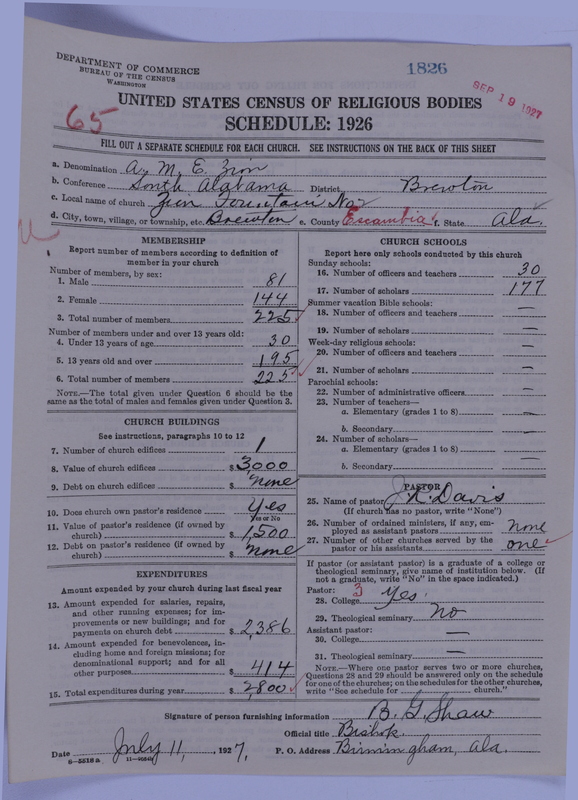 DEPARTMENT OF COMMERCE
BUREAU OF THE CENSUS
WASHINGTON
1826
SEP 19 1927
65
UNITED STATES CENSUS OF RELIGIOUS BODIES
SCHEDULE: 1926
FILL OUT A SEPARATE SCHEDULE FOR EACH CHURCH. SEE INSTRUCTIONS ON THE BACK OF THIS SHEET
a. Denomination A. M. E. Zion
b. Conference South Alabama District Brewton
c. Local name of church Zion Fountain No 2
d. City, town, village, or township, etc. Brewton e. County Escambia f. State Ala.
MEMBERSHIP
Report number of members according to definition of
member in your church
Number of members, by sex:
1. Male 81
2. Female 144
3. Total number of members 225
Number of members under and over 13 years old:
4. Under 13 years of age 30
5. 13 years old and over 195
6. Total number of members 225
NOTE.—The total given under Question 6 should be
same as the total of males and females given under Question 3.
CHURCH BUILDINGS
See instructions, paragraphs 10 to 12
7. Number of church edifices 1
8. Value of church edifices $ 3,000
9. Debt on church edifices $ none
10. Does church own pastor's residence Yes
Yes or No
11. Value of pastor's residence (if owned by
church) $ 1,500
12. Debt on pastor's residence (if owned by
church) $ none
EXPENDITURES
Amount expended by your church during last fiscal year
13. Amount expended for salaries, repairs,
and other running expenses; for im-
provements or new buildings; and for
payments on church debt $ 2,386
14. Amount expended for benevolences, in-
cluding home and foreign missions; for
denominational support; and for all
other purposes $ 414
15. Total expenditures during year $ 2,800
CHURCH SCHOOLS
Report here only schools conducted by this church
Sunday schools:
16. Number of officers and teachers 30
17. Number of scholars 177
Summer vacation Bible schools:
18. Number of officers and teachers —
19. Number of scholars —
Week-day religious schools:
20. Number of officers and teachers —
21. Number of scholars —
Parochial schools:
22. Number of administrative officers —
23. Number of teachers—
a. Elementary (grades 1 to 8) —
b. Secondary —
24. Number of scholars—
a. Elementary (grades 1 to 8) —
b. Secondary —
PASTOR
25. Name of pastor J. R. Davis
(If church has no pastor, write "None")
26. Number of ordained ministers, if any, em-
ployed as assistant pastors none
27. Number of other churches served by the
pastor or his assistants one
If pastor (or assistant pastor) is a graduate of a college or
theological seminary, give name of institution below. (If
not a graduate, write "No" in the space indicated.)
Pastor: 3
28. College Yes
29. Theological seminary No
Assistant pastor:
30. College —
31. Theological seminary —
NOTE.—Where one pastor serves two or more churches,
Questions 28 and 29 should be answered only on the schedule
for one of the churches; on the schedules for the other churches,
write "See schedule for church."
Signature of person furnishing information B. G. Shaw
Official title Bishop
Date July 11, 1927, P. O. Address Birmingham, Ala.
8-5518 a